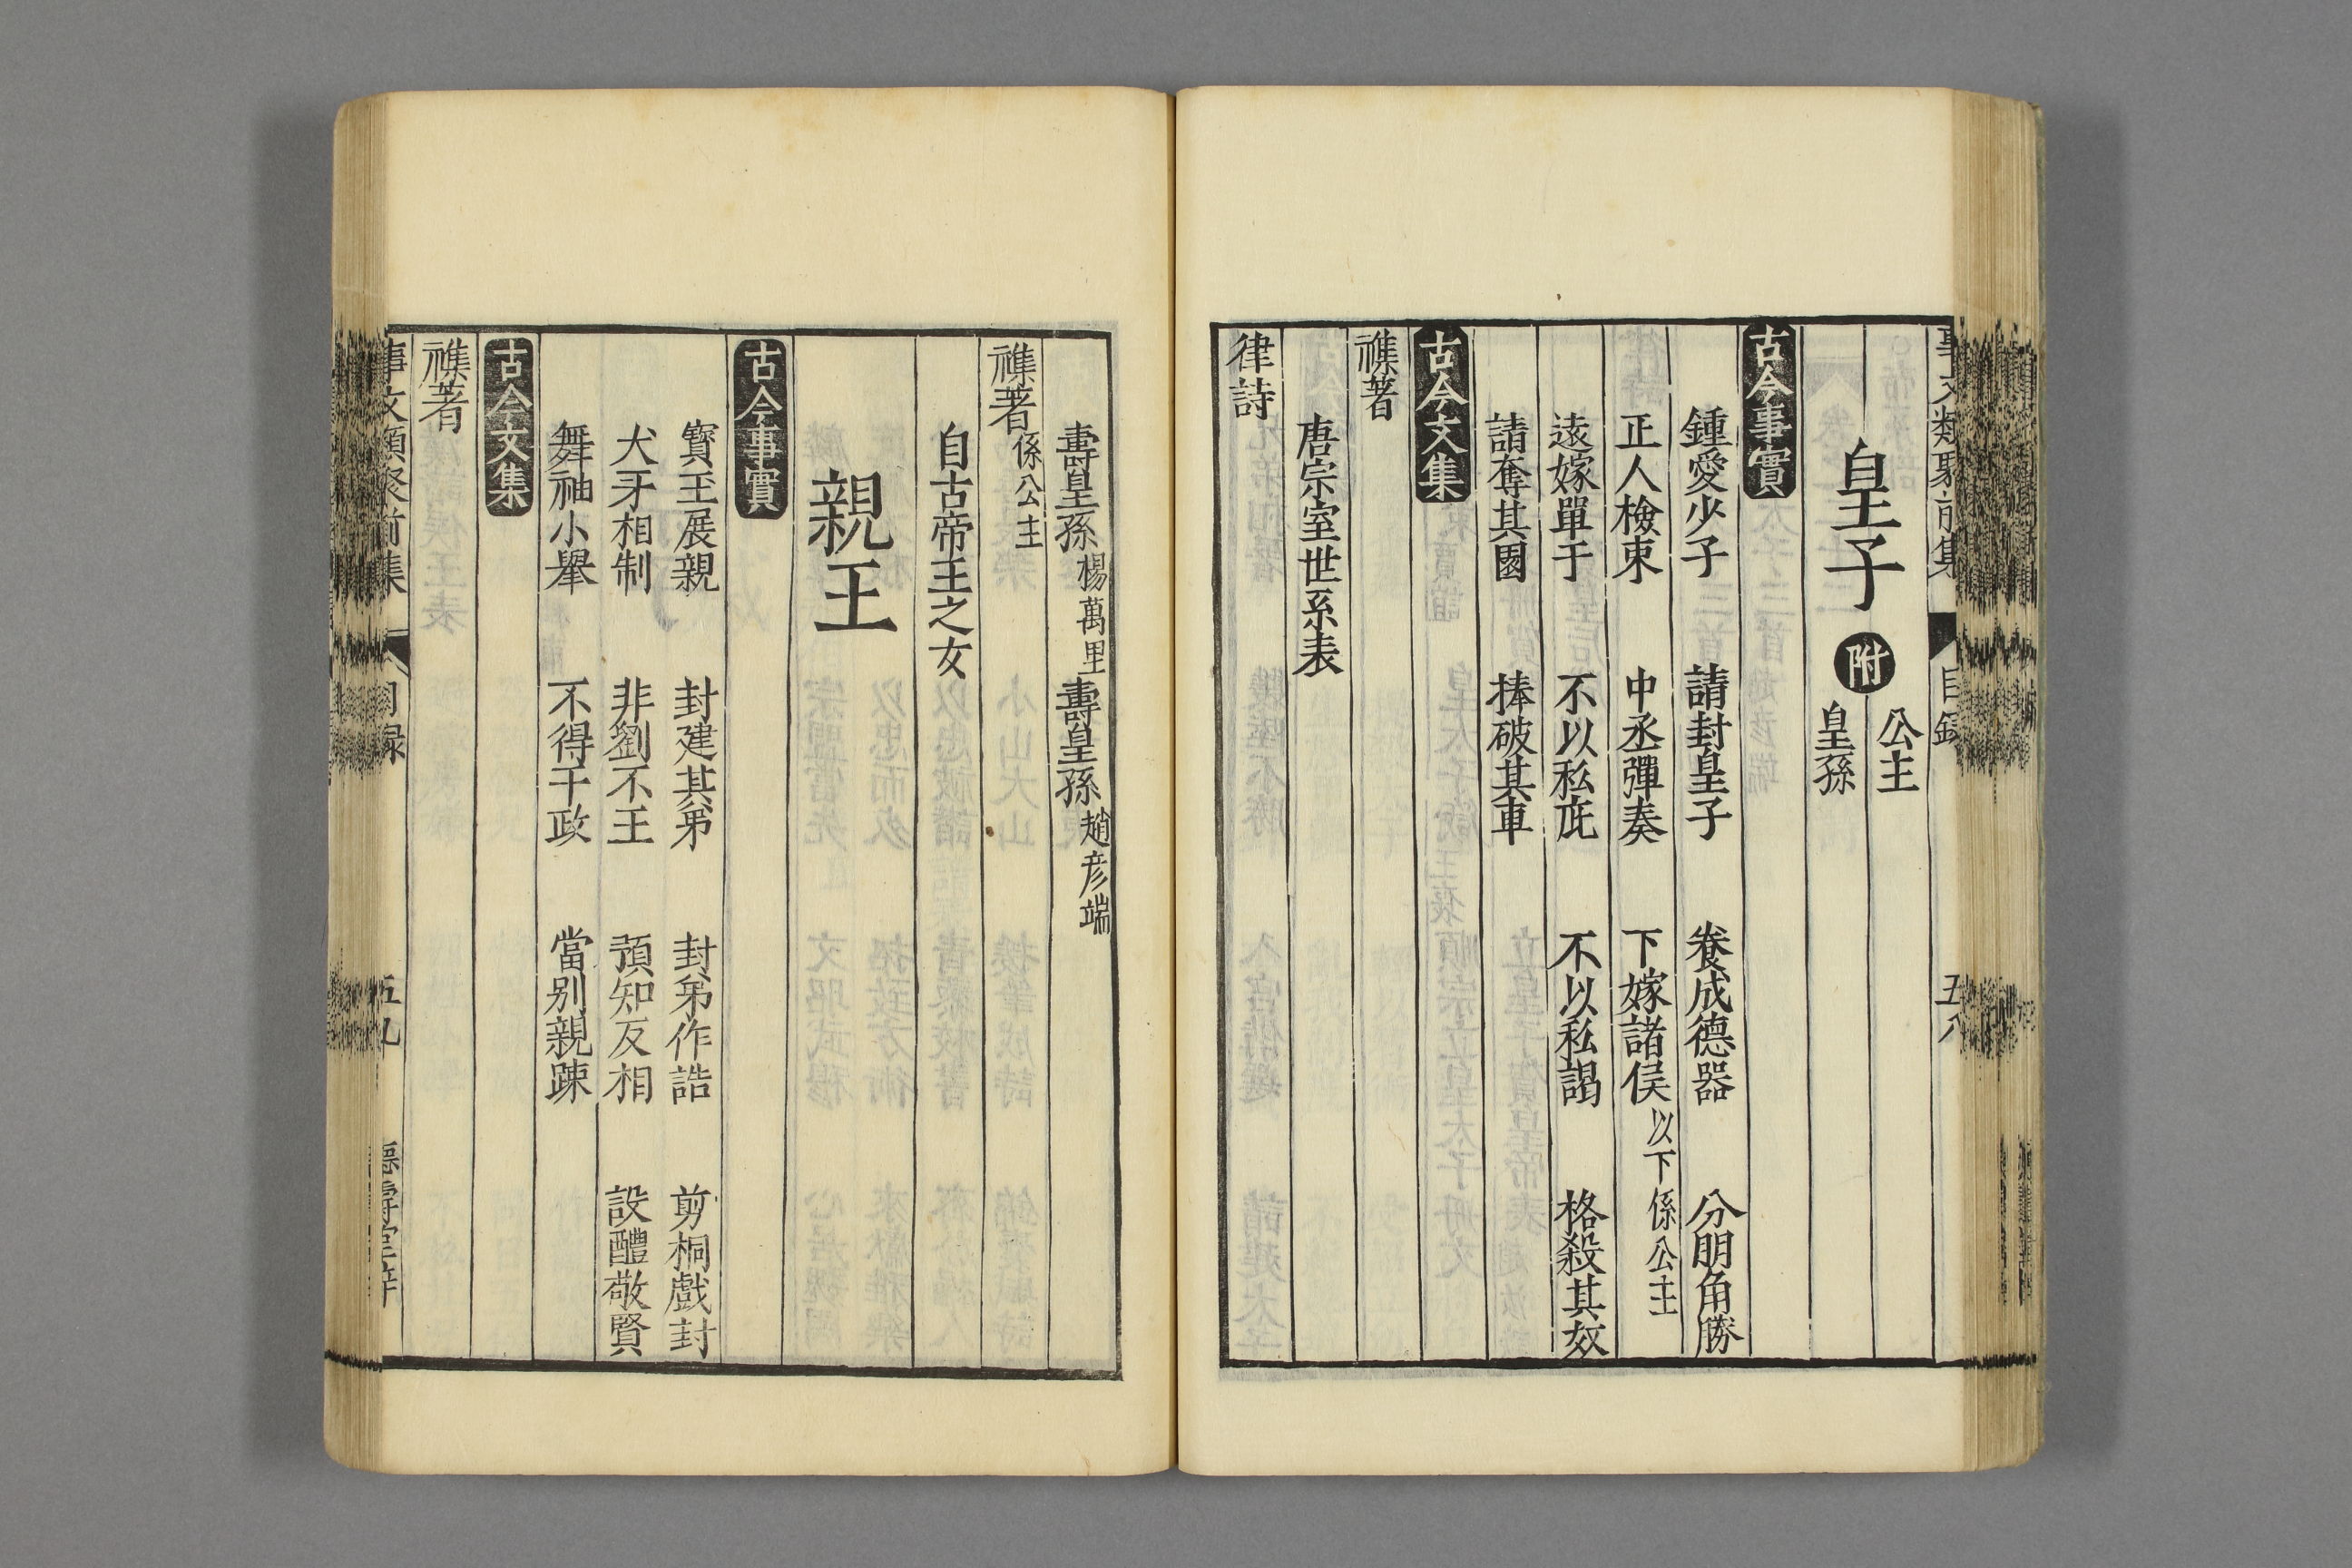 事文類聚前集 目錄 五八
皇子 附 公主 皇孫
古今事實
鍾愛少子 請封皇子 養成德器 分朋角勝
正人檢束 中丞彈奏 下嫁諸侯 以下係公主
遠嫁單于 不以私庇 不以私謁 格殺其奴
請奪其園 捧破其車
古今文集
襍著
唐宗室世系表
律詩
壽皇孫 楊萬里 壽皇孫 趙彦端
襍著 係公主
自古帝王之女
親王
古今事實
寶玉展親 封建其弟 封弟作誥 剪桐戲封
犬牙相制 非劉不王 預知反相 設醴敬賢
舞袖小舉 不得干政 當别親踈
古今文集
襍著
事文類聚前集 目録 五九